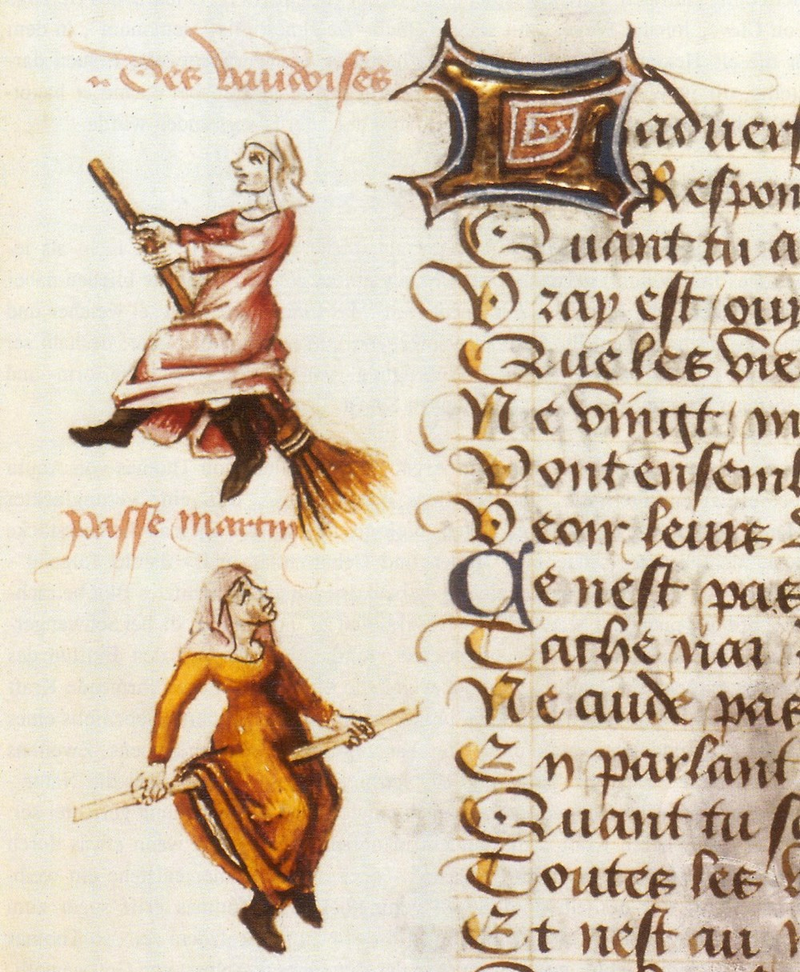 Des vaudoises
passe martin
Ladvers
Respon
Quant tu a
Vray est / ouy
Que les vie
Ne vingt / m
Vont ensemb
Veoir leurs
Ce nest pas
Tache nai
Ne cuide pas
En parlant
Quant tu so
Toutes les v
Et nest au